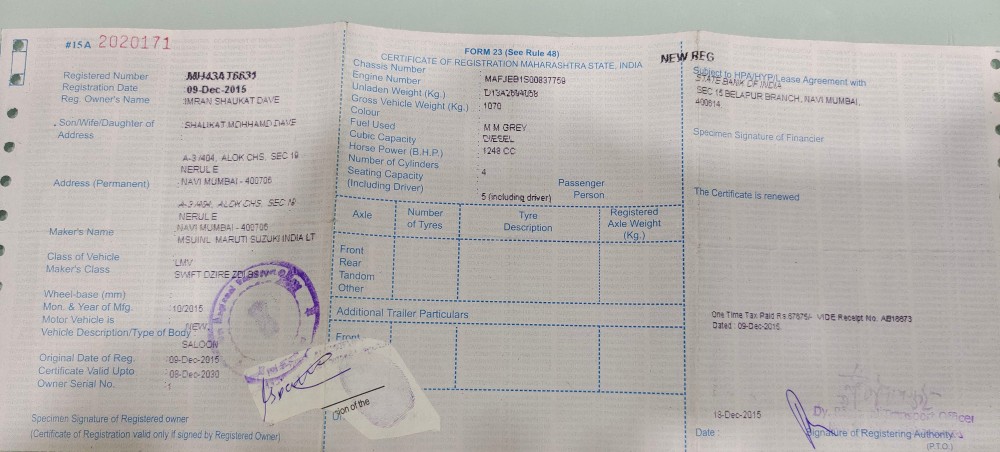 #15A 2020171
Registered Number MH43AT6631
Registration Date 09-Dec-2015
Reg. Owner's Name IMRAN SHAUKAT DAVE
Son/Wife/Daughter of SHAUKAT MOHHAMD DAVE
Address
A-3/404, ALOK CHS, SEC 19
NERUL E
Address (Permanent) NAVI MUMBAI - 400706
A-3/404, ALOK CHS, SEC 19
NERUL E
Maker's Name NAVI MUMBAI - 400706
MSUINL MARUTI SUZUKI INDIA LT
Class of Vehicle LMV
Maker's Class SWIFT DZIRE
Wheel-base (mm)
Mon. & Year of Mfg. 10/2015
Motor Vehicle is NEW
Vehicle Description/Type of Body SALOON
Original Date of Reg. 09-Dec-2015
Certificate Valid Upto 08-Dec-2030
Owner Serial No. 1
Specimen Signature of Registered owner
(Certificate of Registration valid only if signed by Registered Owner)
FORM 23 (See Rule 48)
CERTIFICATE OF REGISTRATION MAHARASHTRA STATE, INDIA
NEW REG
Chassis Number MAFJEB1S00837759
Engine Number
Unladen Weight (Kg.) 1070
Gross Vehicle Weight (Kg.)
Colour M M GREY
Fuel Used DIESEL
Cubic Capacity 1248 CC
Horse Power (B.H.P.)
Number of Cylinders 4
Seating Capacity Passenger
(Including Driver) 5 (including driver) Person
Axle Number of Tyres Tyre Description Registered Axle Weight (Kg.)
Front
Rear
Tandom
Other
Additional Trailer Particulars
Front
sion of the
Subject to HPA/HYP/Lease Agreement with
STATE BANK OF INDIA
SEC 15 BELAPUR BRANCH, NAVI MUMBAI,
400614
Specimen Signature of Financier
The Certificate is renewed
One Time Tax Paid Rs. VIDE Receipt No.
Dated : 09-Dec-2015
18-Dec-2015
Date :
Signature of Registering Authority
(P.T.O.)